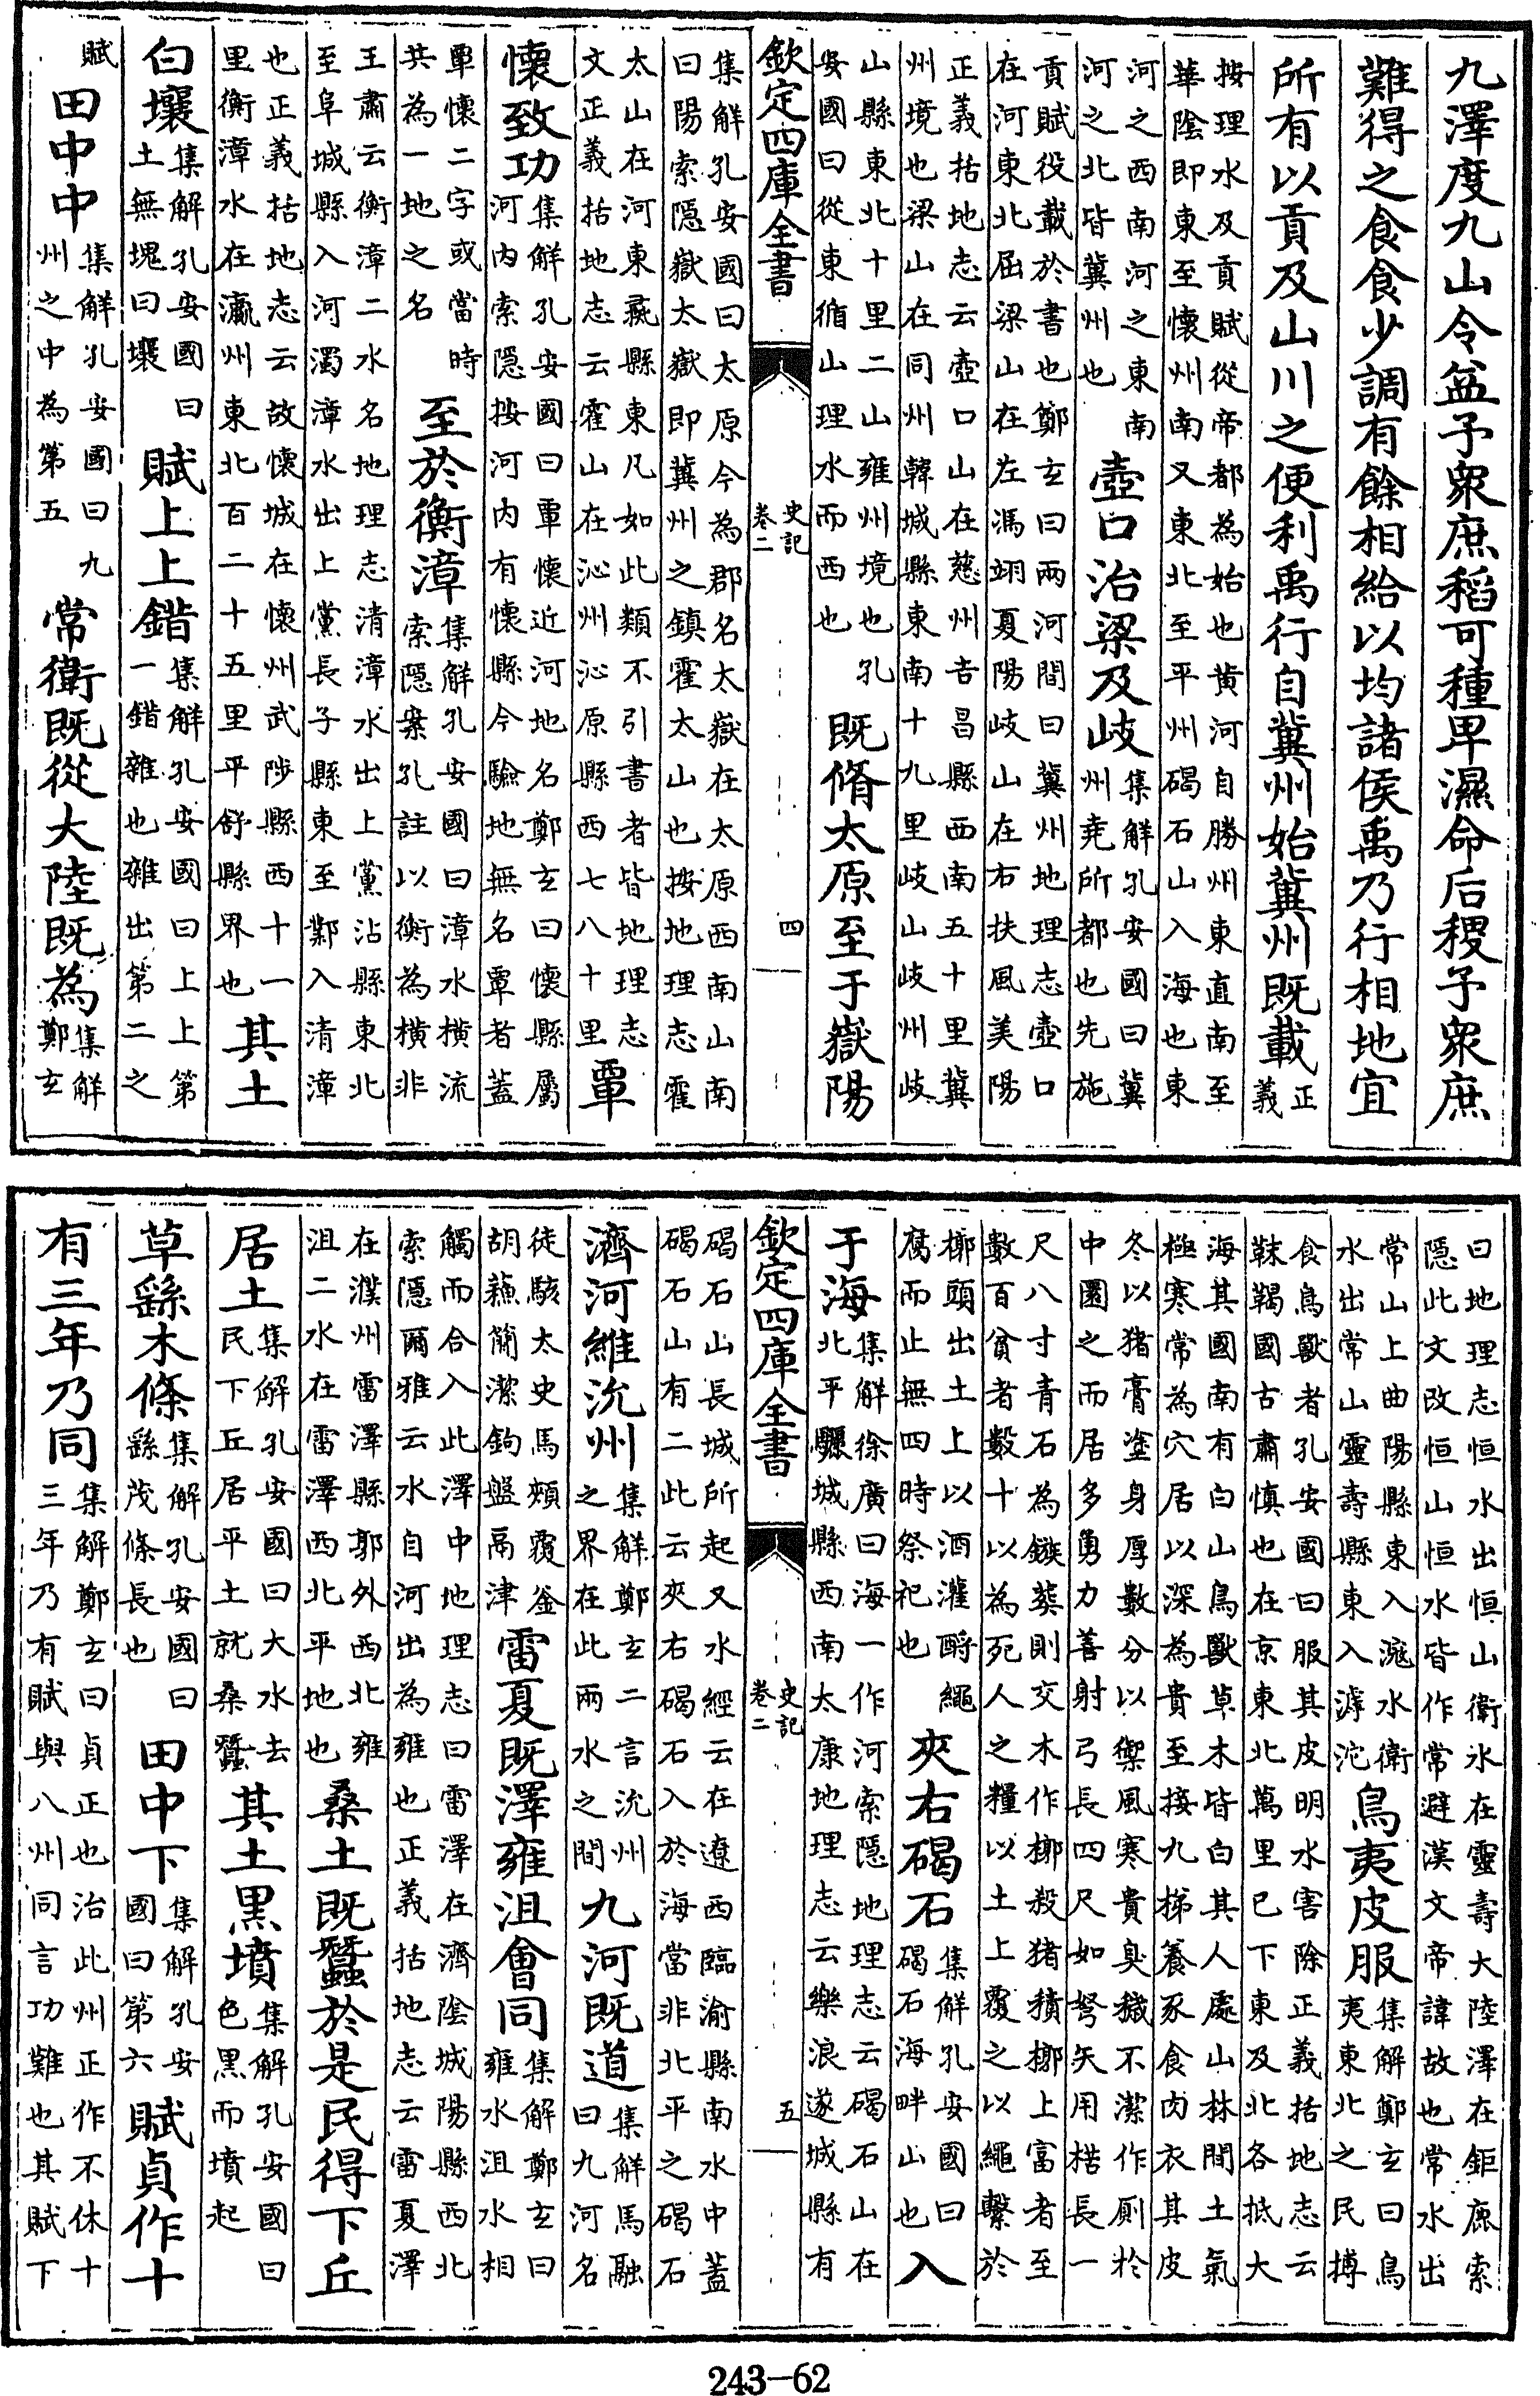 九澤度九山令益予衆庶稻可種卑濕命后稷予衆庶
難得之食食少調有餘相給以均諸侯禹乃行相地宜
所有以貢及山川之便利禹行自冀州始冀州既載正義
按理水及貢賦從帝都為始也黄河自勝州東直南至
華陰即東至懷州南又東北至平州碣石山入海也東
河之西南河之東南
河之北皆冀州也
壺口治梁及岐
集解孔安國曰冀
州堯所都也先施
貢賦役載於書也鄭玄曰兩河間曰冀州地理志壺口
在河東北屈梁山在左馮翊夏陽岐山在右扶風美陽
正義括地志云壺口山在慈州吉昌縣西南五十里冀
州境也梁山在同州韓城縣東南十九里岐山岐州岐
山縣東北十里二山雍州境也孔
安國曰從東循山理水而西也
既脩太原至于嶽陽
欽定四庫全書
史記
卷二
四
集解孔安國曰太原今為郡名太嶽在太原西南山南
曰陽索隱嶽太嶽即冀州之鎮霍太山也按地理志霍
太山在河東彘縣東凡如此類不引書者皆地理志
文正義括地志云霍山在沁州沁原縣西七八十里
覃
懷致功
集解孔安國曰覃懷近河地名鄭玄曰懷縣屬
河内索隱按河内有懷縣今驗地無名覃者蓋
覃懷二字或當時
共為一地之名
至於衡漳
集解孔安國曰漳水橫流
索隱案孔註以衡為橫非
王肅云衡漳二水名地理志清漳水出上黨沾縣東北
至阜城縣入河濁漳水出上黨長子縣東至鄴入清漳
也正義括地志云故懷城在懷州武陟縣西十一
里衡漳水在瀛州東北百二十五里平舒縣界也
其土
白壤
集解孔安國曰
土無塊曰壤
賦上上錯
集解孔安國曰上上第
一錯雜也雜出第二之
賦
田中中
集解孔安國曰九
州之中為第五
常衛既從大陸既為
集解
鄭玄
曰地理志恒水出恒山衛水在靈壽大陸澤在鉅鹿索
隱此文改恒山恒水皆作常避漢文帝諱故也常水出
常山上曲陽縣東入滱水衛
水出常山靈壽縣東入滹沱
鳥夷皮服
集解鄭玄曰鳥
夷東北之民搏
食鳥獸者孔安國曰服其皮明水害除正義括地志云
靺鞨國古肅慎也在京東北萬里已下東及北各抵大
海其國南有白山鳥獸草木皆白其人處山林間土氣
極寒常為穴居以深為貴至接九梯養豕食肉衣其皮
冬以猪膏塗身厚數分以禦風寒貴臭穢不潔作厠於
中圜之而居多勇力善射弓長四尺如弩矢用楛長一
尺八寸青石為鏃葬則交木作槨殺猪積槨上富者至
數百貧者數十以為死人之糧以土上覆之以繩繫於
槨頭出土上以酒灌酹繩
腐而止無四時祭祀也
夾右碣石
集解孔安國曰
碣石海畔山也
入
于海
集解徐廣曰海一作河索隱地理志云碣石山在
北平驪城縣西南太康地理志云樂浪遂城縣有
欽定四庫全書
史記
卷二
五
碣石山長城所起又水經云在遼西臨渝縣南水中蓋
碣石山有二此云夾右碣石入於海當非北平之碣石
濟河維沇州
集解鄭玄言沇州
之界在此兩水之間
九河既道
集解馬融
曰九河名
徒駭太史馬頰覆釜
胡蘓簡潔鉤盤鬲津
雷夏既澤雍沮會同
集解鄭玄曰
雍水沮水相
觸而合入此澤中地理志曰雷澤在濟隂城陽縣西北
索隱爾雅云水自河出為雍也正義括地志云雷夏澤
在濮州雷澤縣郭外西北雍
沮二水在雷澤西北平地也
桑土既蠶於是民得下丘
居土
集解孔安國曰大水去
民下丘居平土就桑蠶
其土黑墳
集解孔安國曰
色黑而墳起
草繇木條
集解孔安國曰
繇茂條長也
田中下
集解孔安
國曰第六
賦貞作十
有三年乃同
集解鄭玄曰貞正也治此州正作不休十
三年乃有賦與八州同言功難也其賦下
243-62